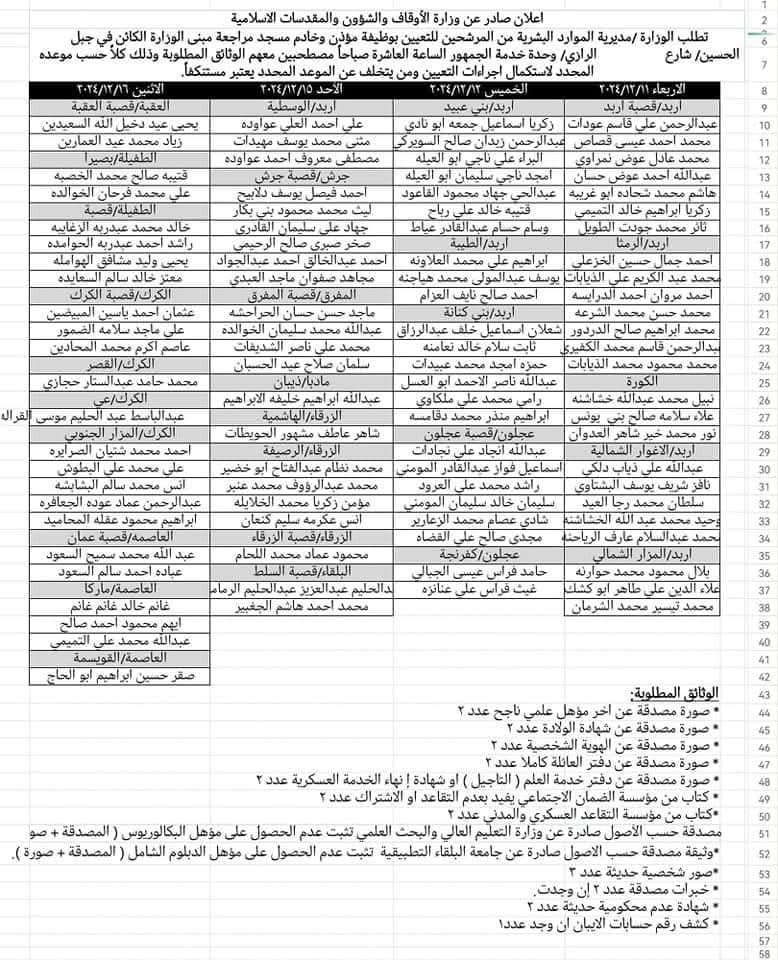 اعلان صادر عن وزارة الأوقاف والشؤون والمقدسات الاسلامية
تطلب الوزارة /مديرية الموارد البشرية من المرشحين للتعيين بوظيفة مؤذن وخادم مسجد مراجعة مبنى الوزارة الكائن في جبل
الحسين/ شارع الرازي/ وحدة خدمة الجمهور الساعة العاشرة صباحاً مصطحبين معهم الوثائق المطلوبة وذلك كلاً حسب موعده
المحدد لاستكمال اجراءات التعيين ومن يتخلف عن الموعد المحدد يعتبر مستنكفاً.
الاربعاء ٢٠٢٤/١٢/١١ الخميس ٢٠٢٤/١٢/١٢ الاحد ٢٠٢٤/١٢/١٥ الاثنين ٢٠٢٤/١٢/١٦
اربد/قصبة اربد اربد/بني عبيد اربد/الوسطية العقبة/قصبة العقبة
عبدالرحمن علي قاسم عودات زكريا اسماعيل جمعه ابو نادي علي احمد العلي عواوده يحيى عيد دخيل الله السعيديين
محمد احمد عيسى قصاص عبدالرحمن زيدان صالح السويركي مثنى محمد يوسف مهيدات زياد محمد عيد العمارين
محمد عادل عوض نمراوي البراء علي ناجي ابو العيله مصطفى معروف احمد عواوده الطفيلة/بصيرا
عبدالله احمد عوض حسان امجد ناجي سليمان ابو العيله جرش/قصبة جرش قتيبه صالح محمد الخصبه
هاشم محمد شحاده ابو غريبه عبدالحي جهاد محمود القاعود احمد فيصل يوسف دلابيح علي محمد فرحان الخوالده
زكريا ابراهيم خالد التميمي قتيبه خالد علي رباح ليث محمد محمود بني بكار الطفيلة/قصبة
ثائر محمد جودت الطويل وسام حسام عبدالقادر عياط جهاد علي سليمان القادري خالد محمد عبدربه الزغايبه
اربد/الرمثا اربد/الطيبة صخر صبري صالح الرحيمي راشد احمد عبدربه الحوامده
احمد جمال حسين الخزعلي ابراهيم علي محمد العلاونه احمد عبدالخالق احمد عبدالجواد يحيى وليد مشافق الهوامله
محمد عبد الكريم علي الذيابات يوسف عبدالمولى محمد هياجنه مجاهد صفوان ماجد العبدي معتز خالد سالم السعايده
احمد مروان احمد الدرايسه احمد صالح نايف العزام المفرق/قصبة المفرق الكرك/قصبة الكرك
محمد حسن محمد الشرعه اربد/بني كنانة ماجد حسن حسان الحراحشه عثمان احمد ياسين المبيضين
محمد ابراهيم صالح الدردور شعلان اسماعيل خلف عبدالرزاق عبدالله محمد سليمان الخوالده علي ماجد سلامه الضمور
عبدالرحمن قاسم محمد الكفيري ثابت سلام خالد نعامنه محمد علي ناصر الشديفات عاصم اكرم محمد المحادين
محمد محمود محمد الذيابات حمزه امجد محمد عبيدات سلمان صلاح عيد الحسبان الكرك/القصر
الكورة عبدالله ناصر الاحمد ابو العسل مادبا/ذيبان محمد حامد عبدالستار حجازي
نبيل محمد عبدالله خشاشنه رامي محمد علي ملكاوي عبدالله ابراهيم خليفه الابراهيم الكرك/عي
علاء سلامه صالح بني يونس ابراهيم منذر محمد دقامسه الزرقاء/الهاشمية عبدالباسط عبد الحليم موسى القراله
نور محمد خير شاهر العدوان عجلون/قصبة عجلون شاهر عاطف مشهور الحويطات الكرك/المزار الجنوبي
اربد/الاغوار الشمالية عبدالله انجاد علي نجادات الزرقاء/الرصيفة احمد محمد شتيان الصرايره
عبدالله علي ذياب دلكي اسماعيل فواز عبدالقادر المومني محمد نظام عبدالفتاح ابو خضير علي محمد علي البطوش
نافز شريف يوسف البشتاوي راشد محمد علي العرود محمد عبدالرؤوف محمد عنبر انس محمد سالم البشابشه
سلطان محمد رجا العيد سليمان خالد سليمان المومني مؤمن زكريا محمد الخلايله عبدالرحمن عماد عوده الجعافره
وحيد محمد عبد الله الخشاشنه شادي عصام محمد الزعارير انس عكرمه سليم كنعان ابراهيم محمود عقله المحاميد
محمد عبدالسلام عارف الرياحنه مجدي صالح علي القضاه الزرقاء/قصبة الزرقاء العاصمه/قصبة عمان
اربد/المزار الشمالي عجلون/كفرنجة محمود عماد محمد اللحام عبد الله محمد سميح السعود
بلال محمود محمد حوارنه حامد فراس عيسى الجبالي البلقاء/قصبة السلط عباده احمد سالم السعود
علاء الدين علي طاهر ابو كشك غيث فراس علي عنانزه عبدالحليم عبدالعزيز عبدالحليم العاصمة/ماركا
محمد تيسير محمد الشرمان محمد احمد هاشم الجغبير غانم خالد غانم غانم
ايهم محمود احمد صالح
عبدالله محمد علي التميمي
العاصمة/القويسمة
صقر حسين ابراهيم ابو الحاج
الوثائق المطلوبة:
* صورة مصدقة عن اخر مؤهل علمي ناجح عدد ٢
* صورة مصدقة عن شهادة الولادة عدد ٢
* صورة مصدقة عن الهوية الشخصية عدد ٢
* صورة مصدقة عن دفتر العائلة كاملا عدد ٢
* صورة مصدقة عن دفتر خدمة العلم ( التاجيل ) او شهادة إ نهاء الخدمة العسكرية عدد ٢
* كتاب من مؤسسة الضمان الاجتماعي يفيد بعدم التقاعد او الاشتراك عدد ٢
*كتاب من مؤسسة التقاعد العسكري والمدني عدد ٢
مصدقة حسب الأصول صادرة عن وزارة التعليم العالي والبحث العلمي تثبت عدم الحصول على مؤهل البكالوريوس ( المصدقة + صو
*وثيقة مصدقة حسب الاصول صادرة عن جامعة البلقاء التطبيقية تثبت عدم الحصول على مؤهل الدبلوم الشامل ( المصدقة + صورة ).
*صور شخصية حديثة عدد ٣
* خبرات مصدقة عدد ٢ إن وجدت.
* شهادة عدم محكومية حديثة عدد ٢
* كشف رقم حسابات الايبان ان وجد عدد١